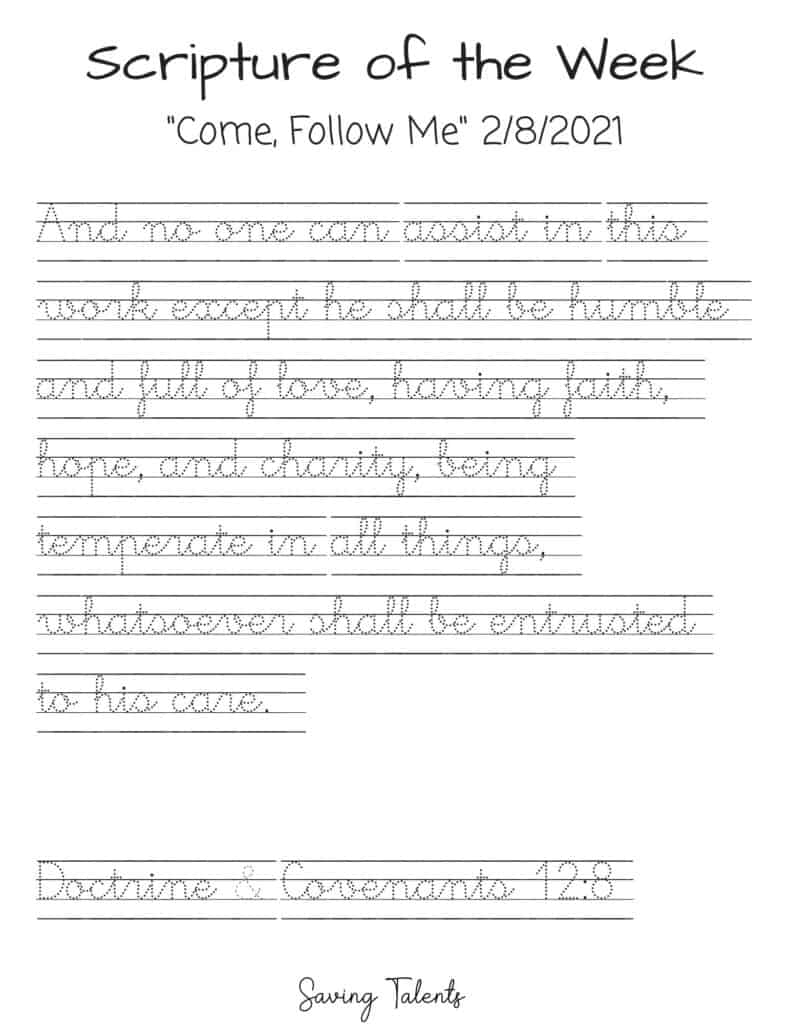 Scripture of the Week
"Come, Follow Me" 2/8/2021
And no one can assist in this
work except he shall be humble
and full of love, having faith,
hope, and charity, being
temperate in all things,
whatsoever shall be entrusted
to his care.
Doctrine & Covenants 12:8
Saving Talents